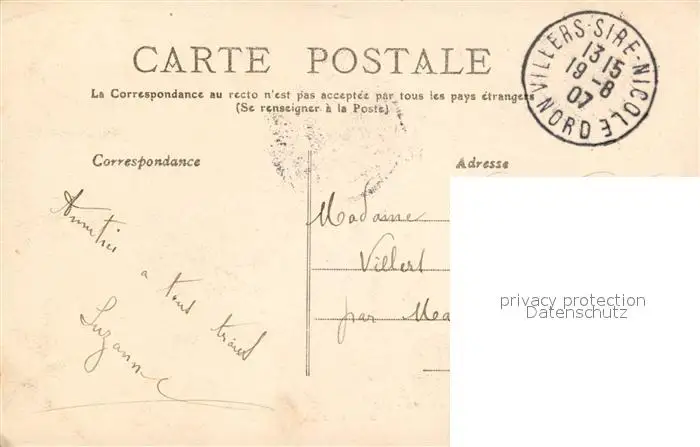 CARTE POSTALE
La Correspondance au recto n'est pas acceptée par tous les pays étrangers
(Se renseigner à la Poste)
VILLERS-SIRE-NICOLE
13 15
19 -8
07
NORD
Correspondance
Adresse
a tous trois
Suzanne
Madame
Villert
par Ma
privacy protection
Datenschutz